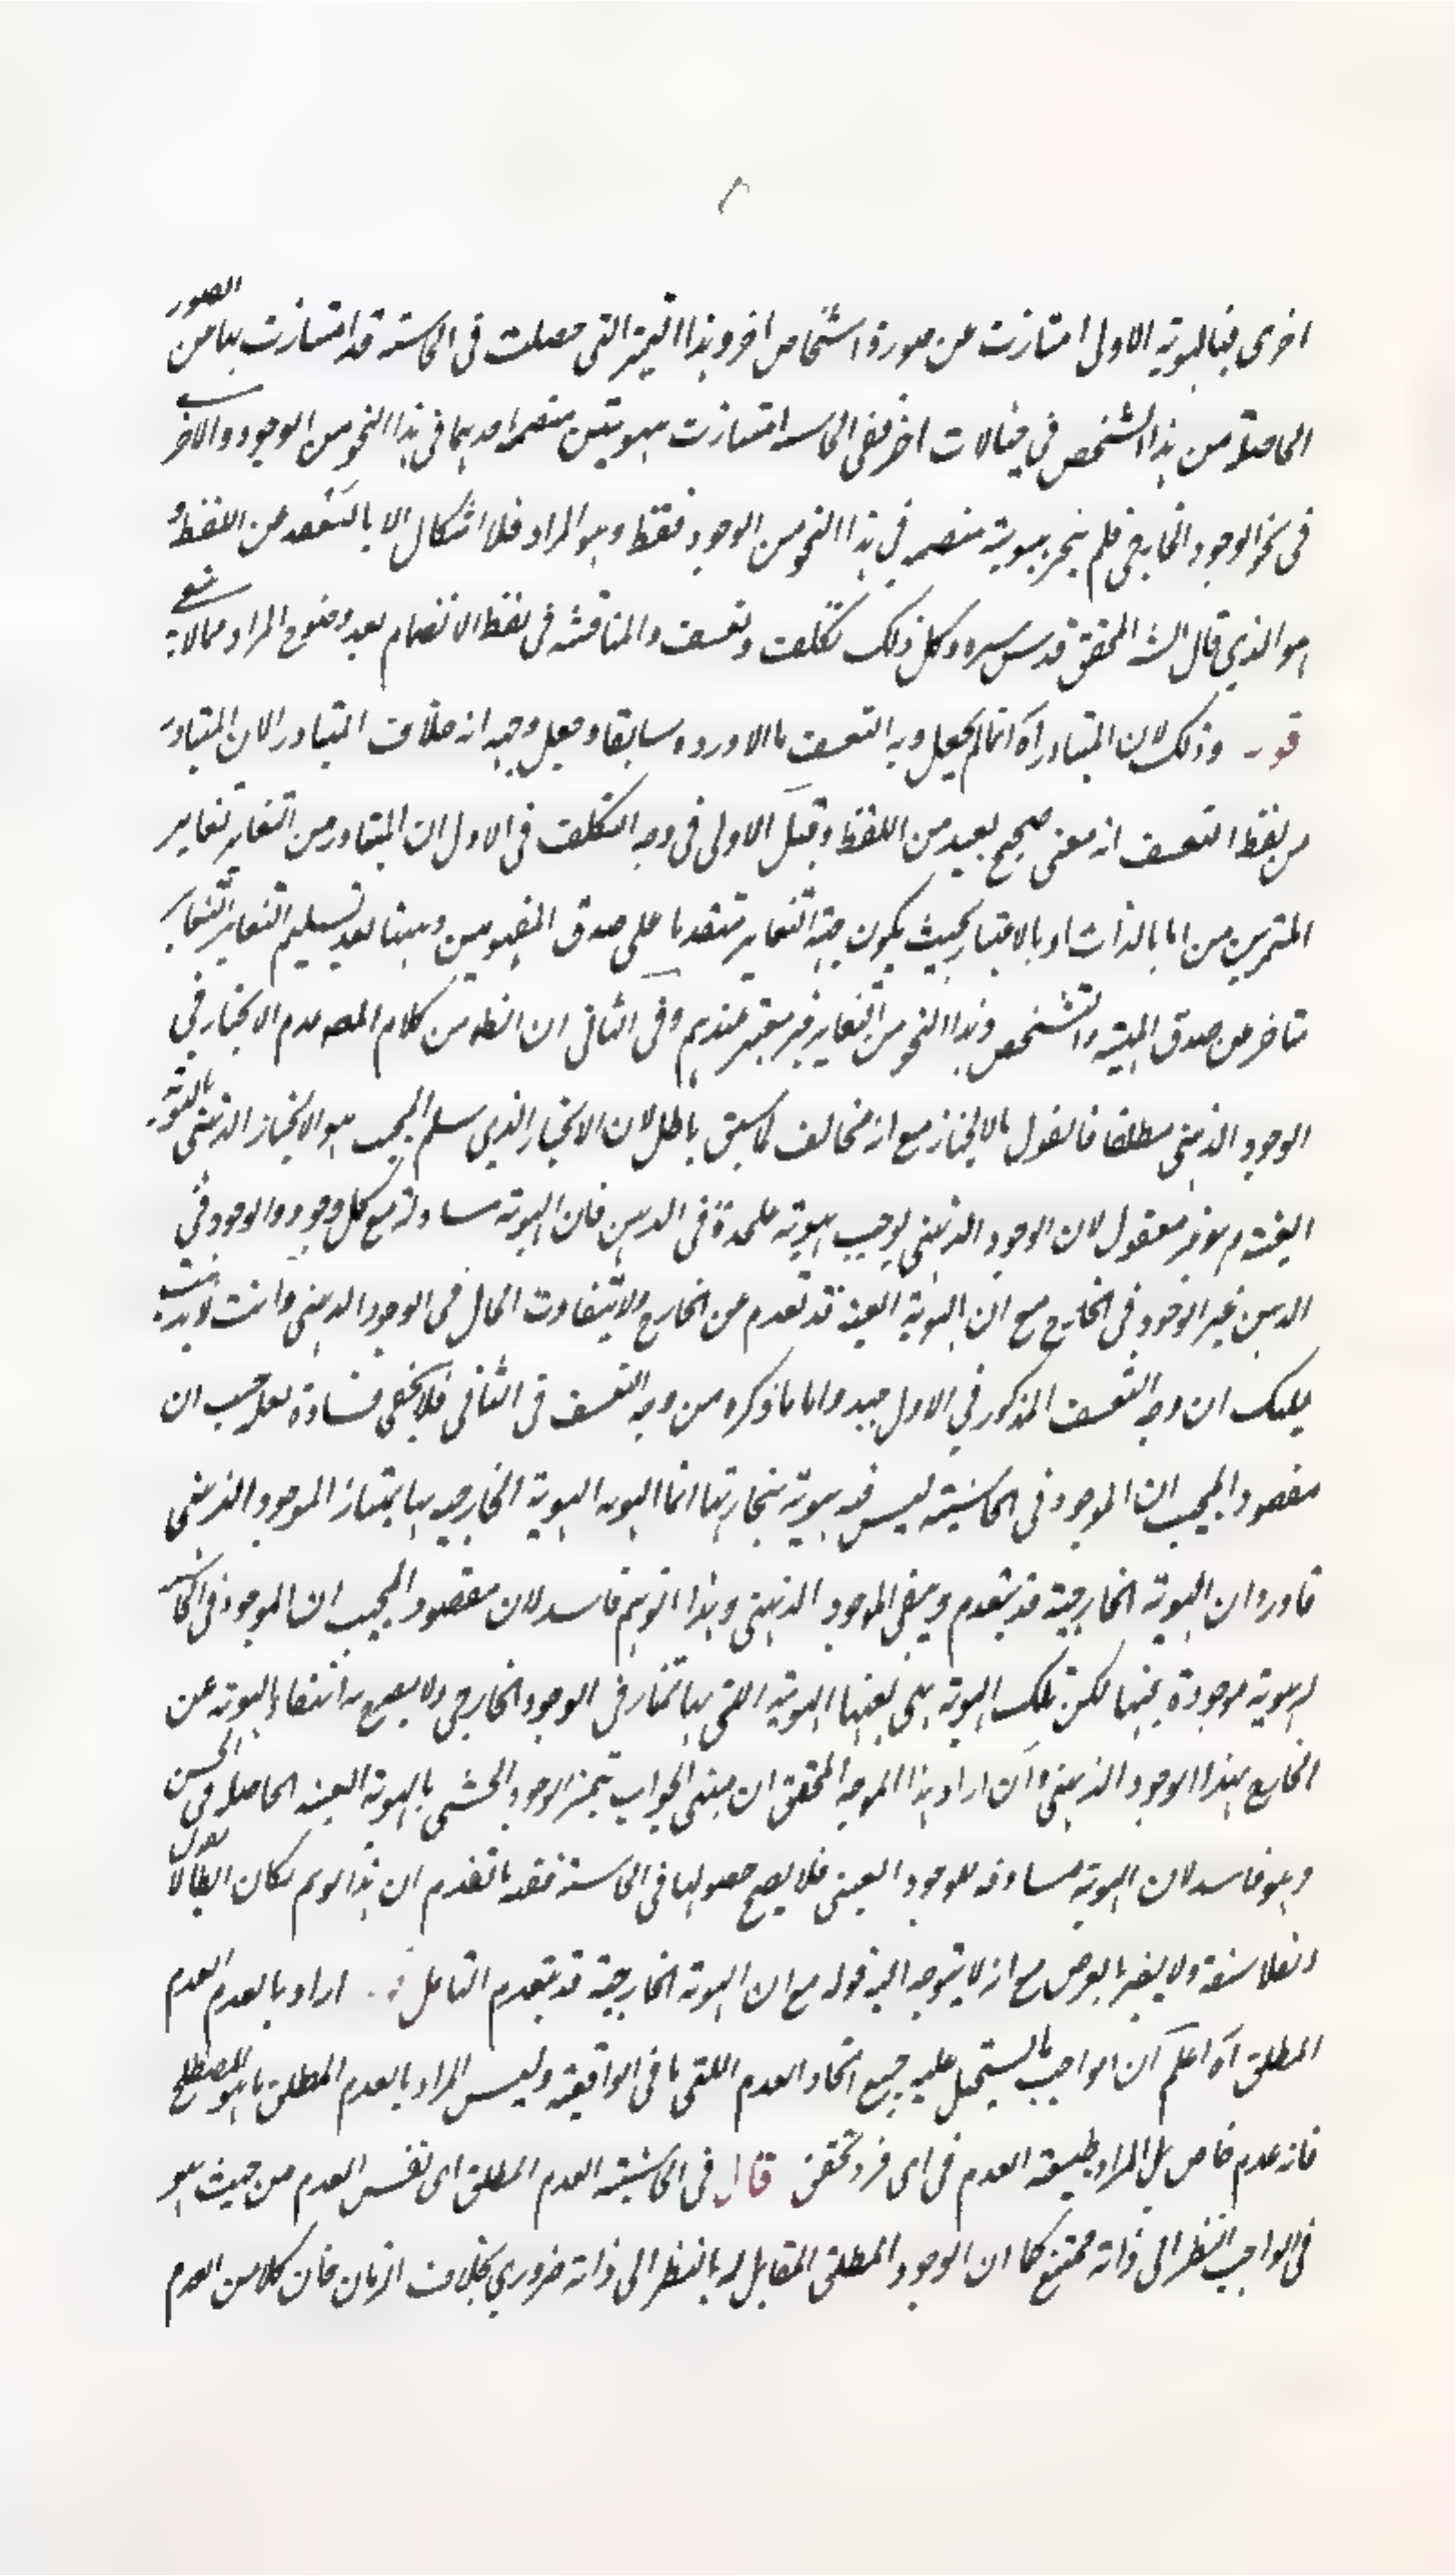 اخرى فبالهوية الاولى امتازت عن صورة اشخاص اخر وبهذا التميز التي حصلت في الحاسة قد امتازت بها من الصور
الحاصلة من هذا الشخص في خيالات اخر ففي الحاسة امتازت بهويتين منضم احديهما في هذا النحو من الوجود والاخر
في نحو الوجود الخارجي فلم ينجز بهوية منضمة في هذا النحو من الوجود فقط وهو المراد فلا اشكال الا بالتبعد عن اللفظ و
هو الذي قال الش المحقق قدس سره وكل ذلك تكلف وتعسف والمناقشة في لفظ الانضمام بعد وضوح المراد مما لا ينبغي
قوله وذلك لان المتبادر اه انما لم يجعل وجه التعسف ما الاورده سابقا وجعل وجهه انه خلاف المتبادر لان المتبادر
من لفظ التعسف انه معنى صحيح بعيد من اللفظ وقيل الاولى في وجه التكلف في الاول ان المتبادر من التغاير تغاير
المتميزين اما بالذات او بالاعتبار بحيث يكون جهة التغاير متقدما على صدق المفهومين وههنا بعد تسليم التغاير التغاير
متاخر عن صدق الهية والتشخص وهذا النحو من التغاير غير معتبر عندهم وفي الثاني ان الظ من كلام المصه عدم الانحياز في
الوجود الذهني مطلقا فالقول بالانحياز مع انه مخالف لما سبق باطل لان الانحياز الذي سلم المجيب هو الانحياز الذهني بالهوية
العينية وهو غير معقول لان الوجود الذهني يوجب هوية على حدة في الذهن فان الهوية مساوقة مع كل وجود والوجود في
الذهن غير الوجود في الخارج مع ان الهوية العينية قد تعدم عن الخارج ولا يتفاوت الحال في الوجود الذهني وانت لا يذهب
عليك ان وجه التعسف المذكور في الاول جيد واما ما ذكره من وجه التعسف في الثاني فلا يخفى فساده لعله حسب ان
مقصود المجيب ان الموجود في الحاسة ليس فيه هوية ينحاز بها انما الهوية الهوية الخارجية بها يمتاز الموجود الذهني
فاورد ان الهوية الخارجية قد يتعدم ويبقى الموجود الذهني وهذا التوهم فاسد لان مقصود المجيب ان الموجود في الحاسة
له هوية موجودة فيها لكن تلك الهوية هي بعينها الهوية التي بها تنحاز في الوجود الخارجي ولا يصح به انتفاء الهوية عن
الخارج بهذا الوجود الذهني وان اراد هذا الموجه المحقق ان مبنى الجواب تميز الوجود الحسي بالهوية العينية الحاصلة في الحس
وهو فاسد لان الهوية مساوقة للوجود العيني فلا يصح حصولها في الحاسة فقد ما تقدم ان هذا لو تم لكان ابطالا لقول
الفلاسفة ولا يضر بالغرض مع انه لا يتوجه اليه قوله مع ان الهوية الخارجية قد يتعدم التامل قوله اراد بالعدم العدم
المطلق اه اعلم ان الواجب ما يستحيل عليه جميع انحاء العدم اللتي ما في الواقعية وليس المراد بالعدم المطلق ما هو المصطلح
فانه عدم خاص بل المراد طبيعة العدم في اي فرد تحقق قال في الحاشية العدم المطلق اى نفس العدم من حيث هو
في الواجب بالنظر الى ذاته ممتنع كما ان الوجود المطلق المقابل له بالنظر الى ذاته ضروري بخلاف الزمان فان كلا من العدم